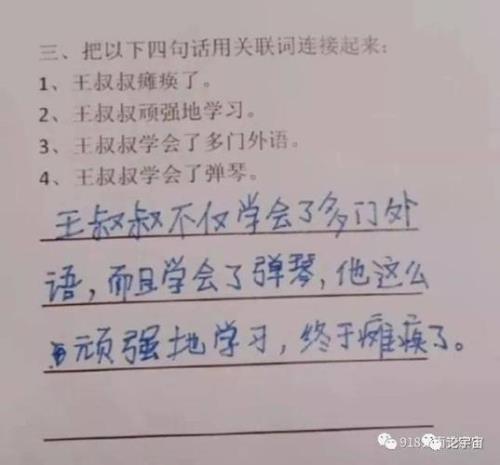 三、把以下四句话用关联词连接起来:
1、王叔叔瘫痪了。
2、王叔叔顽强地学习。
3、王叔叔学会了多门外语。
4、王叔叔学会了弹琴。
王叔叔不仅学会了多门外
语，而且学会了弹琴，他这么
顽强地学习，终于瘫痪了。